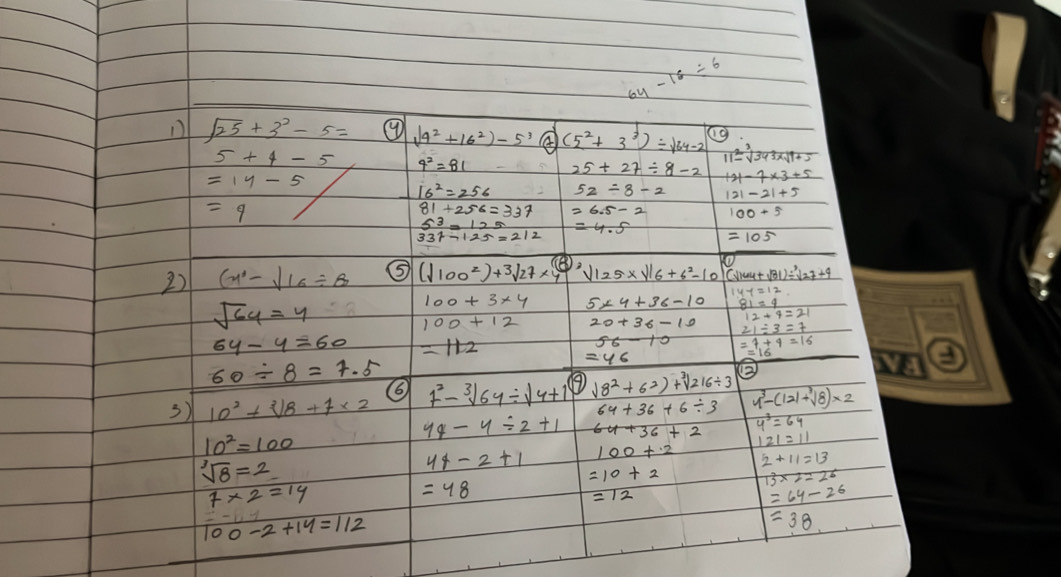 64 - 16 ÷ 6
1) √25 + 3² - 5 =
5 + 9 - 5
= 14 - 5
= 9
④ √(9² + 16²) - 5³
9² = 81
16² = 256
81 + 256 = 337
5³ = 125
337 - 125 = 212
⑦ (5² + 3³) ÷ √64 - 2
25 + 27 ÷ 8 - 2
52 ÷ 8 - 2
= 6.5 - 2
= 4.5
⑩
11² - ³√343 x √9 + 5
121 - 7 x 3 + 5
121 - 21 + 5
100 + 5
= 105
2)
- √16 ÷ 8
√64 = 4
64 - 4 = 60
60 ÷ 8 = 7.5
⑤ (√100²) + 3√27 x 4
100 + 3 x 4
100 + 12
= 112
⑧ ³√125 x √16 + 6² - 10
5 x 4 + 36 - 10
20 + 36 - 10
56 - 10
= 46
(√144 + √81) ÷ ³√27 + 9
144 = 12
81 = 9
12 + 9 = 21
21 ÷ 3 = 7
= 7 + 9 = 16
= 16
3) 10² - ³√8 + 7 x 2
10² = 100
³√8 = 2
7 x 2 = 14
100 - 2 + 14 = 112
⑥ 7² - ³√64 ÷ √4 + 1
49 - 4 ÷ 2 + 1
49 - 2 + 1
= 48
⑨ √8² + 6²) + ³√216 ÷ 3
64 + 36 + 6 ÷ 3
64 + 36 + 2
100 + 2
= 10 + 2
= 12
⑫
4³ - (121 + ³√8) x 2
4³ = 64
121 = 11
2 + 11 = 13
13 x 2 = 26
= 64 - 26
= 38